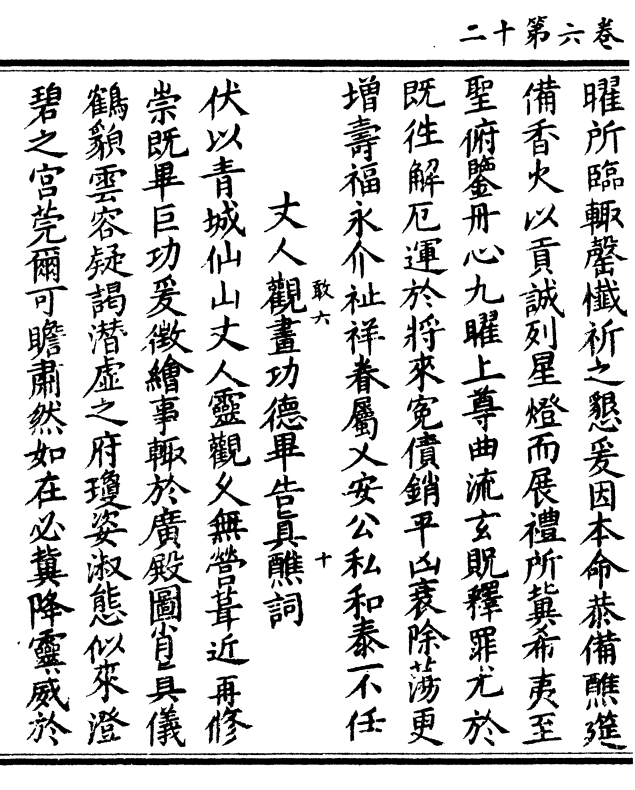 卷六第十二
曜所臨輙罄懴祈之懇爰因本命恭備醮筵
備香火以貢誠列星燈而展禮所兾希夷至
聖俯鑒丹心九曜上尊曲流玄貺釋罪尤於
既徃解厄運於將來寃債銷平凶衰除蕩更
增壽福永介祉祥眷屬乂安公私和泰一不任
丈人觀畫功德畢告真醮詞
敢六
十
伏以青城仙山丈人靈觀久無營葺近再修
崇既畢巨功爰徵繪事輙於廣殿圖肖具儀
鶴貌雲容疑謁潜虛之府瓊姿淑態似來澄
碧之宮莞爾可瞻肅然如在必兾降靈威於